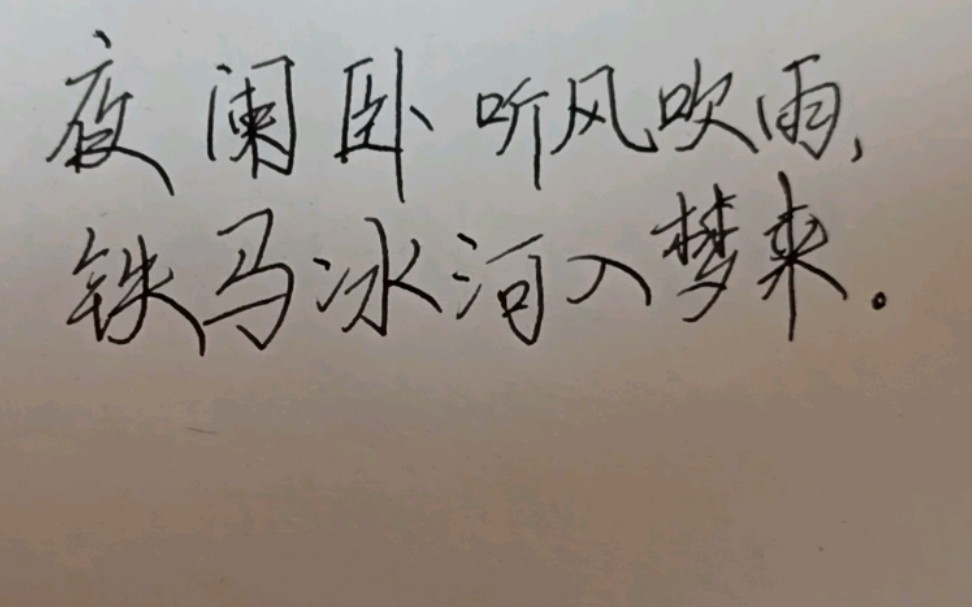 夜阑卧听风吹雨,
铁马冰河入梦来。